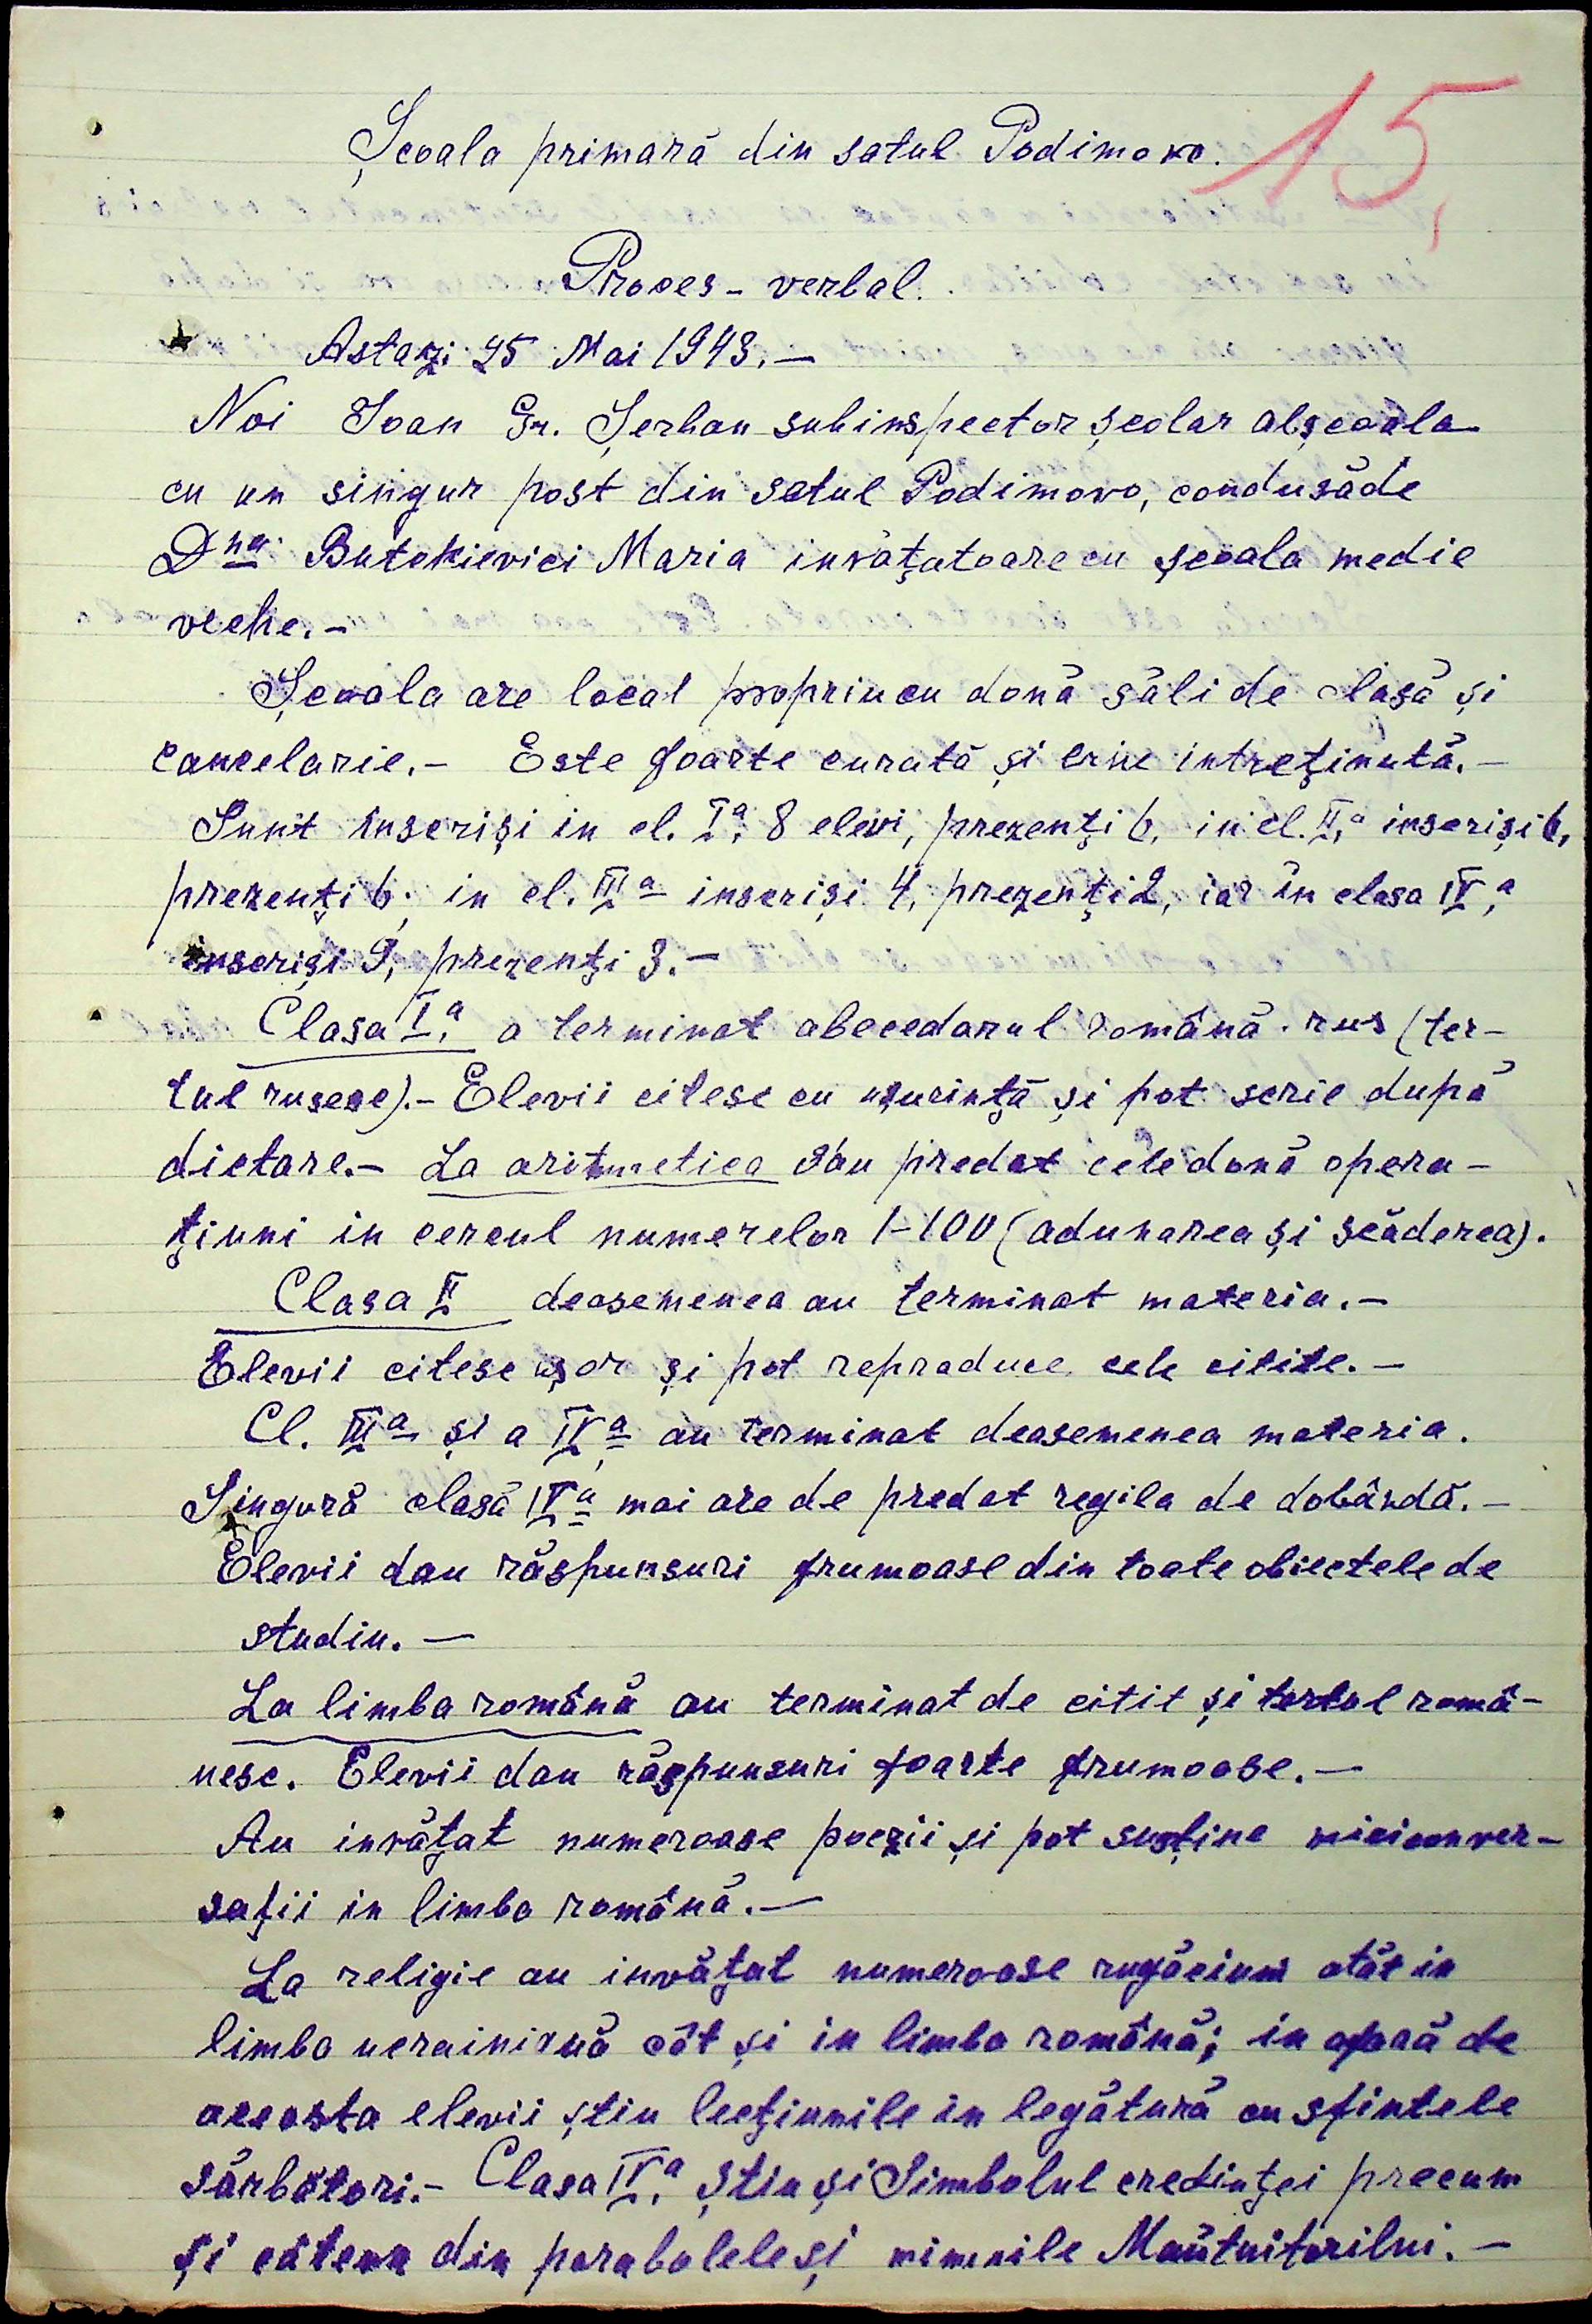 Școala primară din satul Podimovo.
15,
Proces-verbal.
Astazi 25 Mai 1943.—
Noi Ioan Gr. Șerban subinspector școlar al școala
cu un singur post din satul Podimovo, condusă de
Dna. Butckievici Maria invățatoare cu școala medie
veche.-
Școala are local propriu cu două săli de clasă și
cancelarie.- Este foarte curată și bine intreținută.-
Sunt inscriși in cl. Ia, 8 elevi, prezenți 6, in cl. II,a inscriși 6,
prezenți 6; in cl. IIIa inscriși 4, prezenți 2, iar in clasa IV,a
inscriși 9, prezenți 3.-
Clasa I,a a terminat abecedarul română-rus (tex-
tul rusesc).- Elevii citesc cu ușurință și pot scrie după
dictare.- La aritmetica s'au predat cele două opera-
țiuni in cercul numerelor 1-100 (adunarea și scăderea).
Clasa II deasemenea au terminat materia.-
Elevii citesc ușor și pot reproduce cele citite.-
Cl. IIIa și a IVa au terminat deasemenea materia.
Singură clasă IVa mai are de predat regila de dobândă.-
Elevii dau răspunsuri frumoase din toate obiectele de
studiu.—
La limba română au terminat de citit și textul româ-
nesc. Elevii dau răspunsuri foarte frumoase.—
Au invățat numeroase poezii și pot susține mici conver-
sații in limba română.—
La religie au invățat numeroase rugăciuni atât in
limba ucrainiană cât și in limba română; in afară de
aceasta elevii știu lecțiunile in legătură cu sfintele
sărbători.- Clasa IV,a știu și Simbolul credinței precum
și câteva din parabolele și minunile Mântuitorilui.-